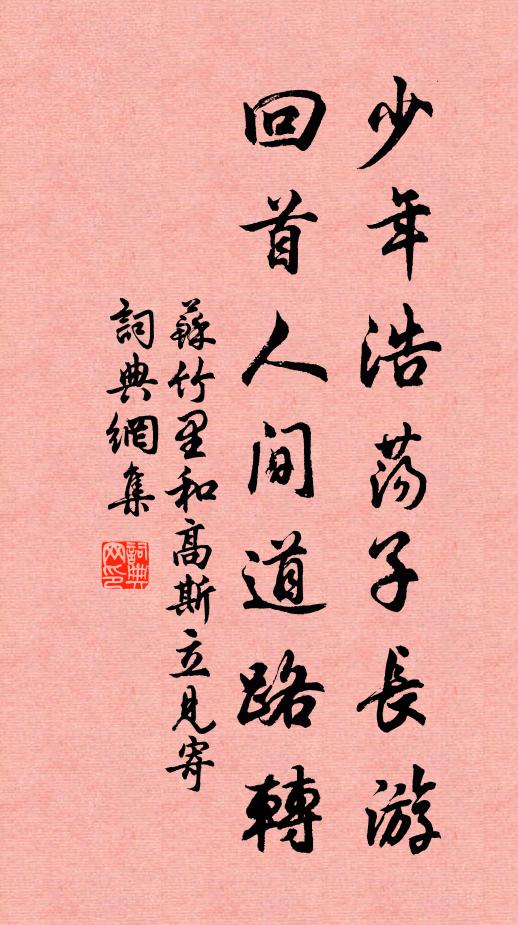 少年浩荡子長游
回首人间道路轉
蘇竹里和高斯立見寄
詞典網集
詞典網印